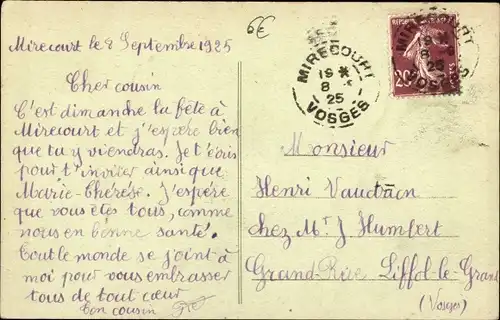 6€
Mirecourt le 8 Septembre 1925
Cher cousin
C'est dimanche la fête à
Mirecourt et j'espère bien
que tu y viendras. Je t'écris
pour t'inviter ainsi que
Marie-Thérèse. J'espère
que vous êtes tous, comme
nous en bonne santé.
Tout le monde se joint à
moi pour vous embrasser
tous de tout cœur
Ton cousin
MIRECOURT
19 *
8
25
VOSGES
MIRECOURT
VOSGES
20
Monsieur
Henri
chez Mr J. Humbert
Grand-Rue Liffol-le-Grand
(Vosges)